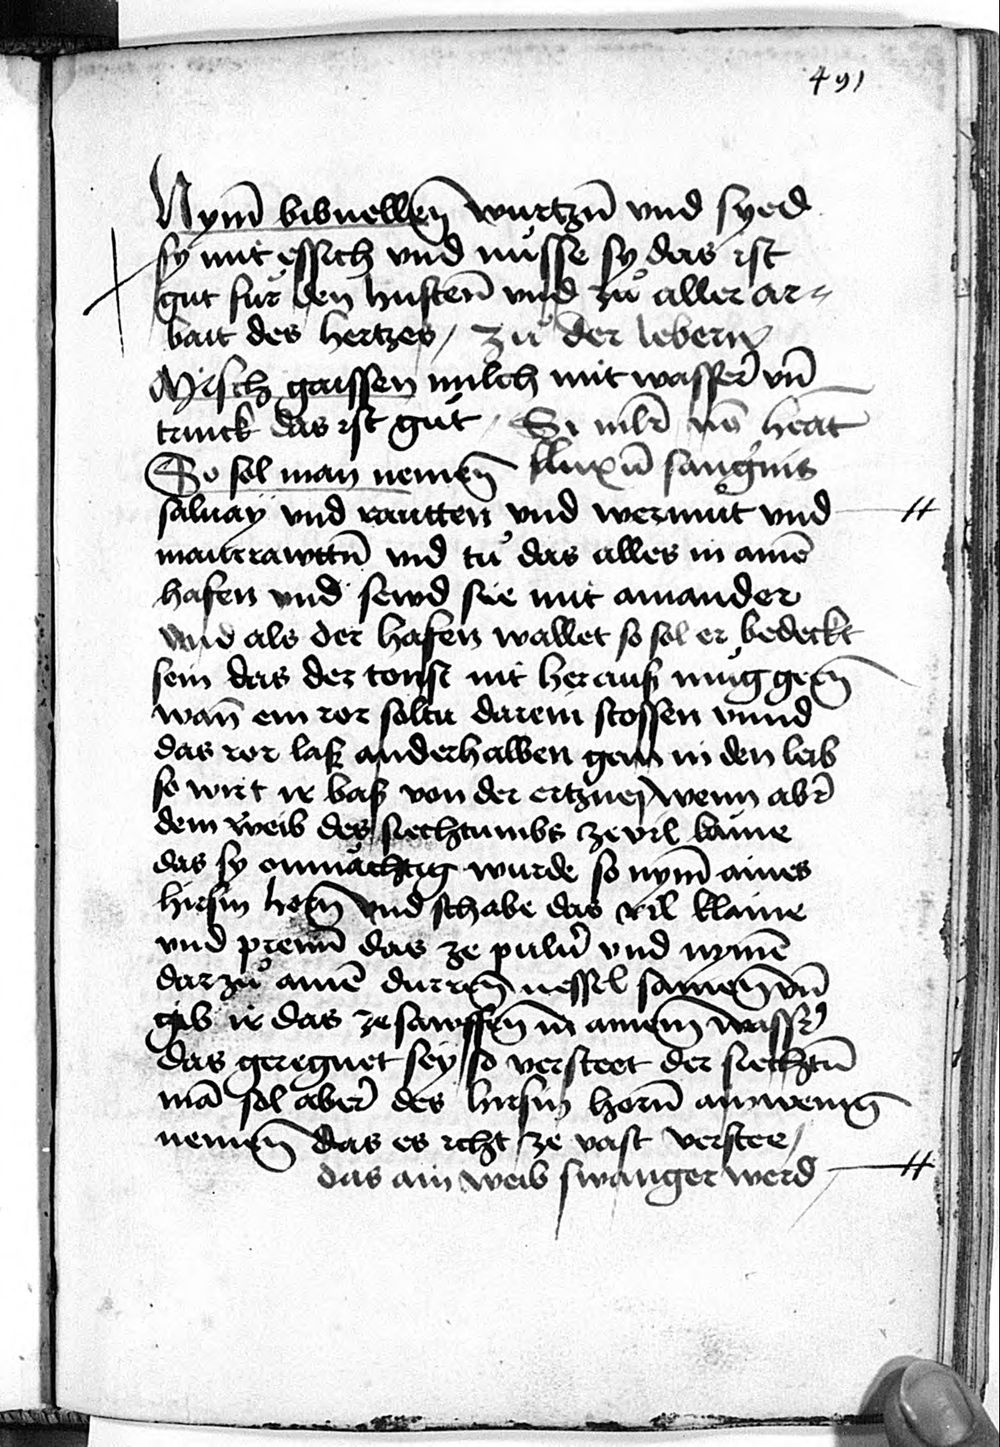 491
Nym̄ bibnellen̄ wurtzn̄ vnd syed
sy mit essich vnd nüsse sy das ist
gut für den husten̄ vnd zů aller ar-
bait des hertzes / zů der lebern
Misch gaissen milch mit wasser̄ vn̄
trinck das ist gůt / Si mlr̄ nō heāt
So sol man nemen̄ fluxū sangvinis
saluay vnd rautten vnd wermůt vnd
mautrawttn̄ vnd tů das alles in ainē
hafen vnd sewd sie mit ainander
vnd als der hafen wallet so sol er bedeckt
sein das der tonst nit herauß müg gen̄
wan̄ ein ror soltu darein stossen vnnd
das ror laß anderhalben gein in den leib
so wirt ir baß von der ertzney wenn abr̄
dem weib des siechtumbs ze vil käme
das sy onmächtig wurde so nym̄ aines
hirsin horn̄ vnd schabe das vil klaine
vnd prenn̄ das ze puluer̄ vnd nymē
darzů ainē durren̄ nessel samen̄ vn̄
gib ir das ze sawffen̄ in ainem̄ wasser̄
das geregnet sey so versteet der siechtū
mā sol aber̄ des hirsin horn̄ ain wenig
nemen̄ das es icht ze vast verstee /
das ain weib swanger werd